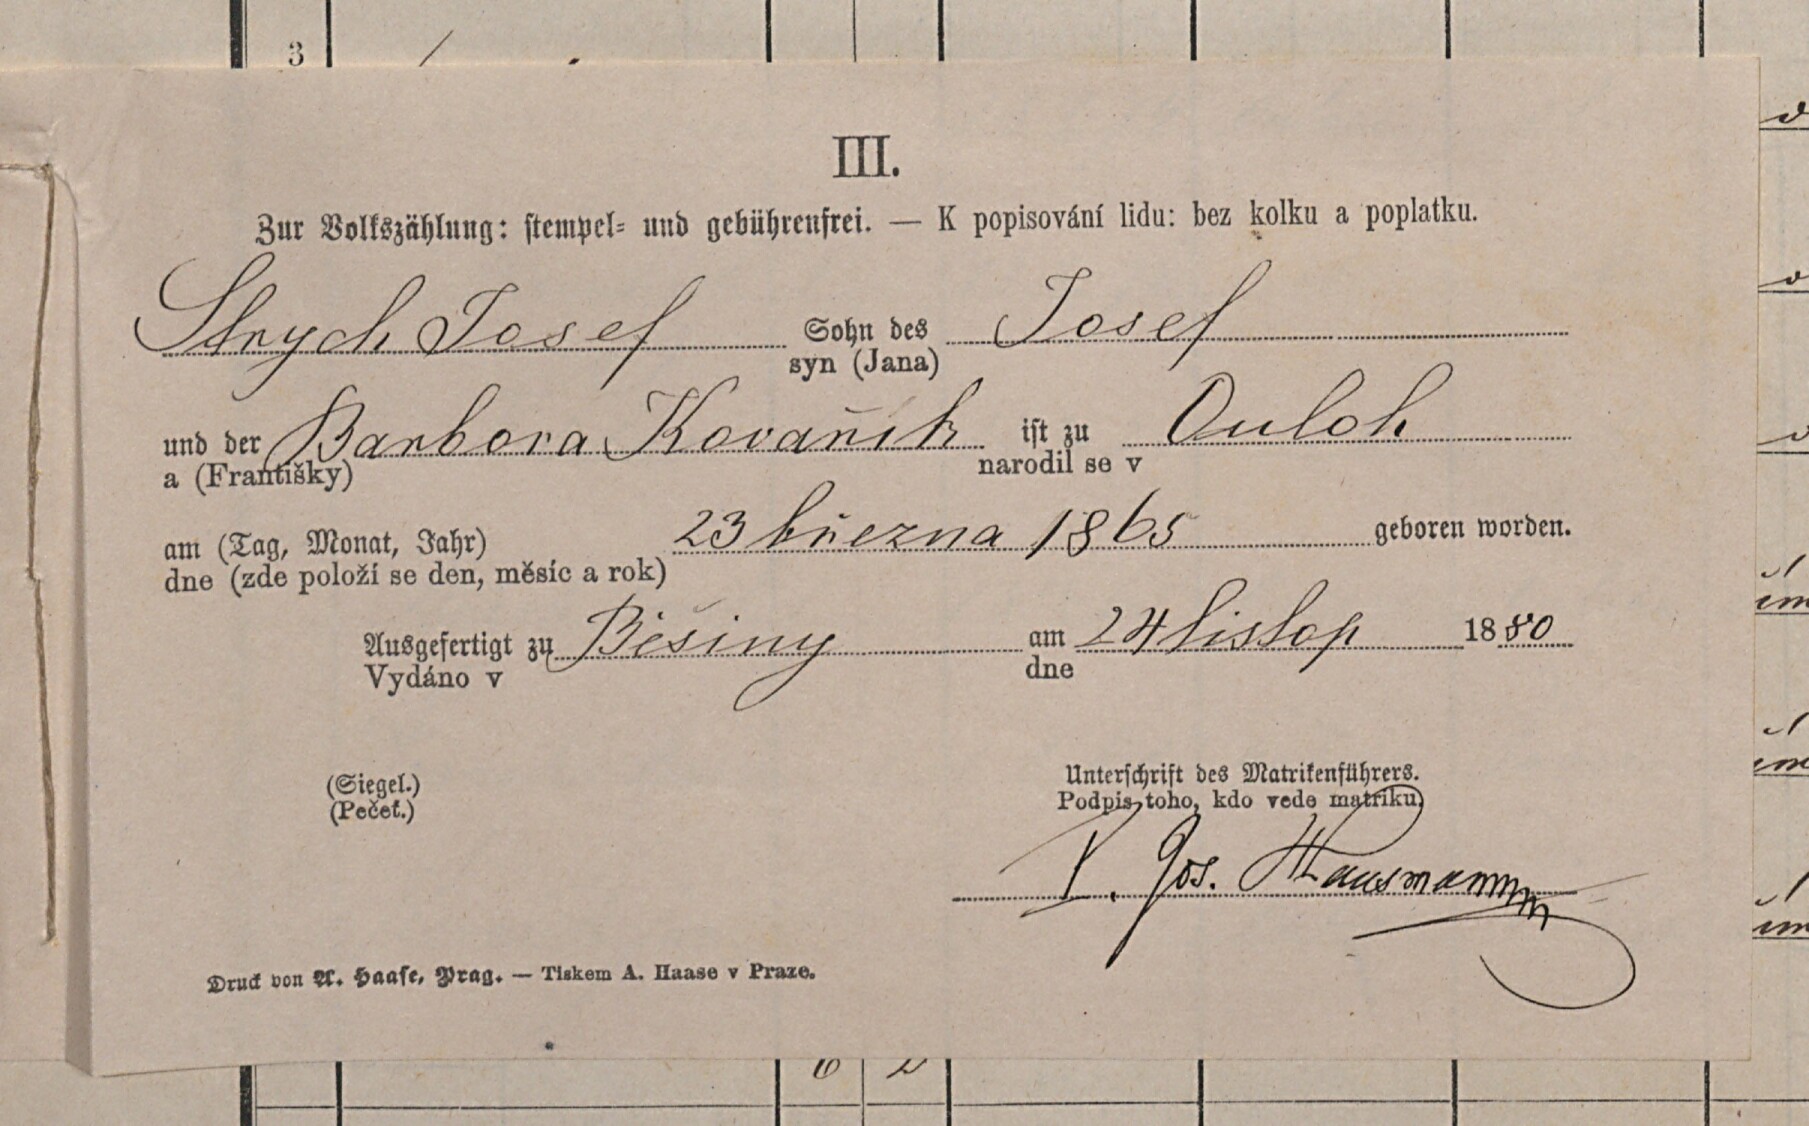 3
III.
Zur Volkszählung: stempel- und gebührenfrei. — K popisování lidu: bez kolku a poplatku.
Strych Josef Sohn des Josef
syn (Jana)
und der Barbora Kovařik ist zu Ouloh
a (Františky) narodil se v
am (Tag, Monat, Jahr) 23 března 1865 geboren worden.
dne (zde položí se den, měsíc a rok)
Ausgefertigt zu Běšiny am 24 listop 1880
Vydáno v dne
(Siegel.) Unterschrift des Matrikenführers.
(Pečeť.) Podpis toho, kdo vede matriku
Jos. Hausmann
Druck von A. Haase, Prag. — Tiskem A. Haase v Praze.
6 2